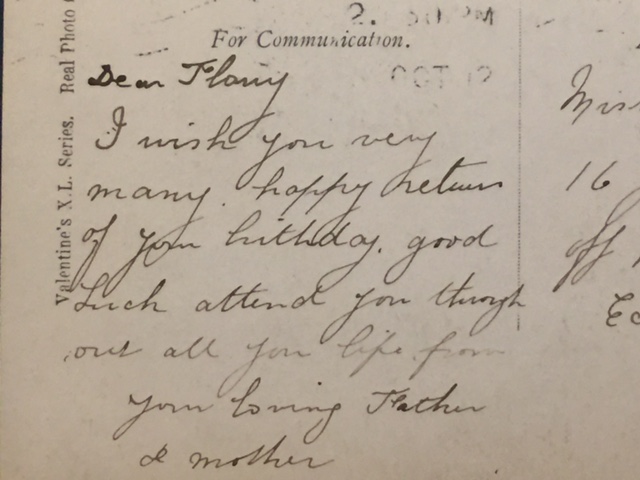 2. 30 PM
For Communication.
OCT 12
Valentine's X.L. Series. Real Photo
Dear Flory
I wish you very
many. happy return
of your birthday. good
Luck attend you through
out all you life from
your loving Father
& mother
Miss
16
off